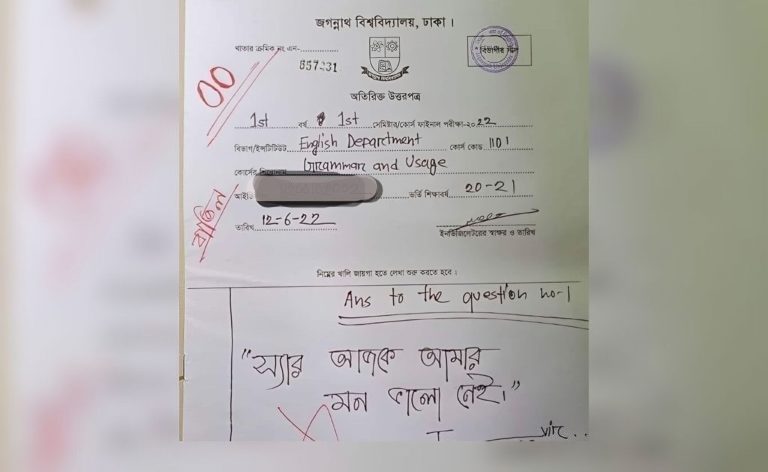 জগন্নাথ বিশ্ববিদ্যালয়, ঢাকা।
খাতার ক্রমিক নং এন-
657231
বিভাগীয় সিল
00
অতিরিক্ত উত্তরপত্র
1st বর্ষ 1st সেমিষ্টার/কোর্স ফাইনাল পরীক্ষা-২০22
বিভাগ/ইন্সটিটিউট English Department কোর্স কোড 1101
কোর্সের Grammar and Usage
আইডি ভর্তি শিক্ষাবর্ষ 20-21
বাতিল
তারিখ 12-6-22
ইনভিজিলেটরের স্বাক্ষর ও তারিখ
নিম্নের খালি জায়গা হতে লেখা শুরু করতে হবে।
Ans to the question no-1
"স্যার আজকে আমার
মন ভালো নেই।"